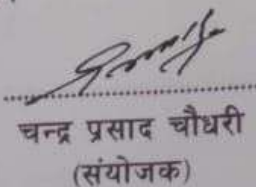 चन्द्र प्रसाद चौधरी
(संयोजक)